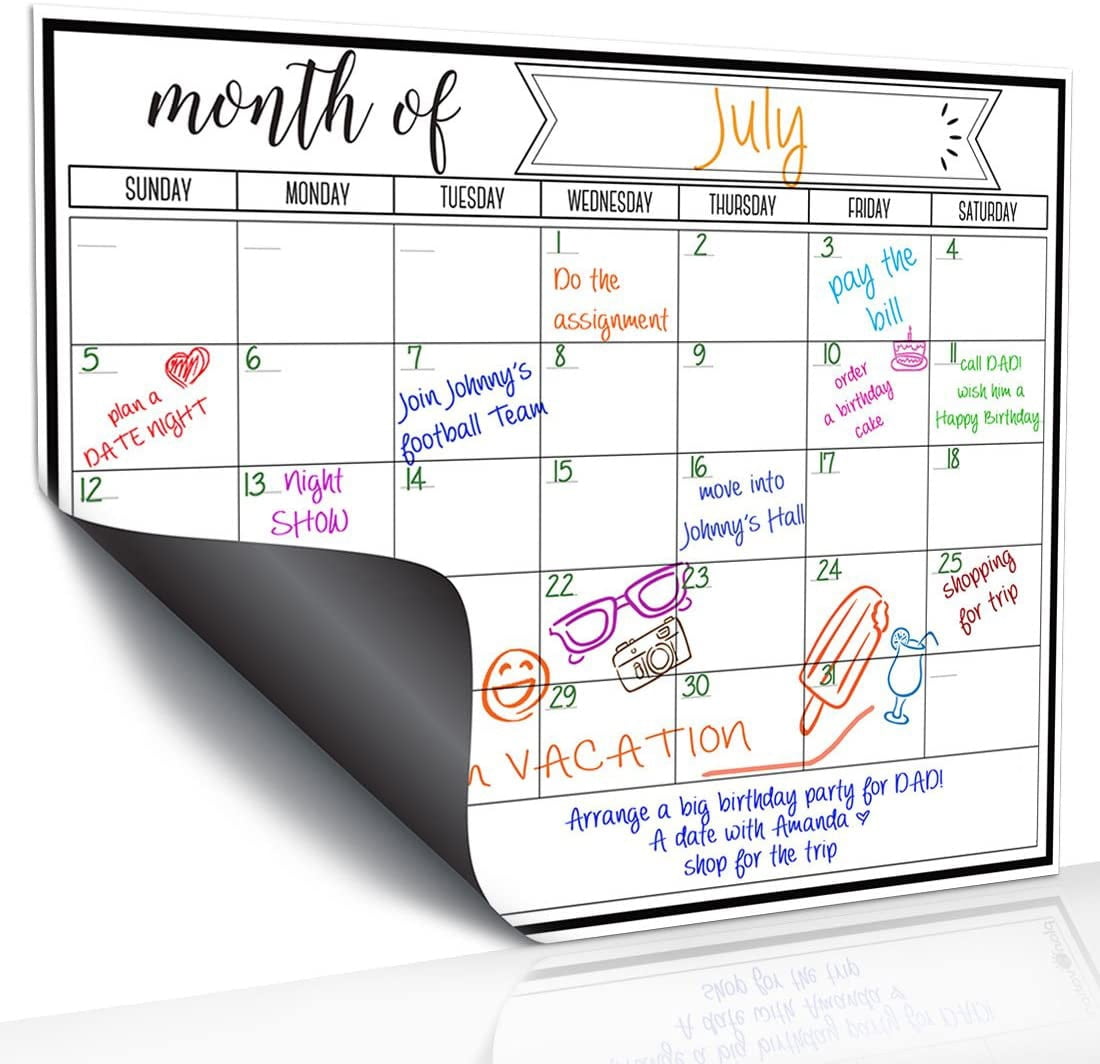 month of
July
SUNDAY MONDAY TUESDAY WEDNESDAY THURSDAY FRIDAY SATURDAY
1 2 3 4
Do the
assignment
pay the
bill
5 6 7 8 9 10 11
plan a
DATE NIGHT
Join Johnny's
football Team
order
a birthday
cake
call DAD!
wish him a
Happy Birthday
12 13 14 15 16 17 18
Night
SHOW
move into
Johnny's Hall
22 23 24 25
shopping
for trip
29 30 31
VACATION
Arrange a big birthday party for DAD!
A date with Amanda
shop for the trip